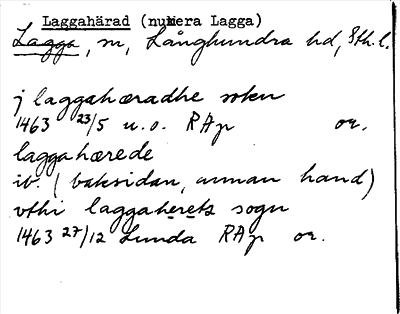 Laggahärad (numera Lagga)
Lagga, sn, Långhundra hd, Sth.l.
j laggahæradhe sokn
1463 23/5 u.o. RAp or.
laggahærede
ib. (baksidan, annan hand)
vthi laggaherets sogn
1463 27/12 Lunda RAp or.